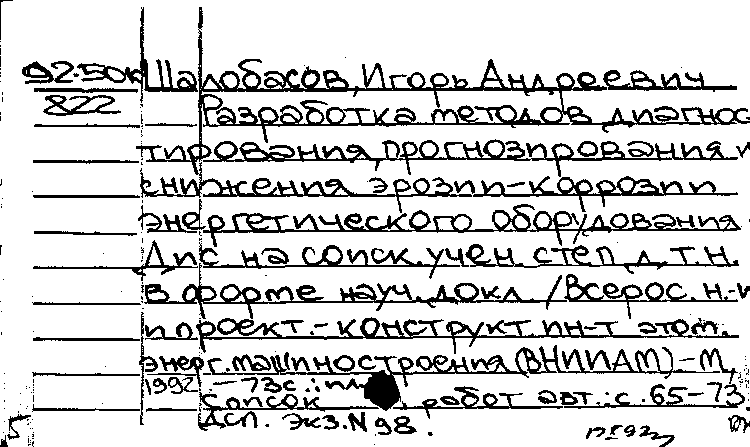 92-50к Шалобасов, Игорь Андреевич
822 Разработка методов диагнос-
тирования, прогнозирования и
снижения эрозии-коррозии
энергетического оборудования.
Дис на соиск. учен. степ. д.т.н.
в форме науч. докл. / Всерос. н.-и
и проект.-конструкт. ин-т атом.
энерг. машиностроения (ВНИИАМ).-М.,
1992. -73с.: ил
Список работ авт.: с. 65-73
ДСП. Экз. N 98.